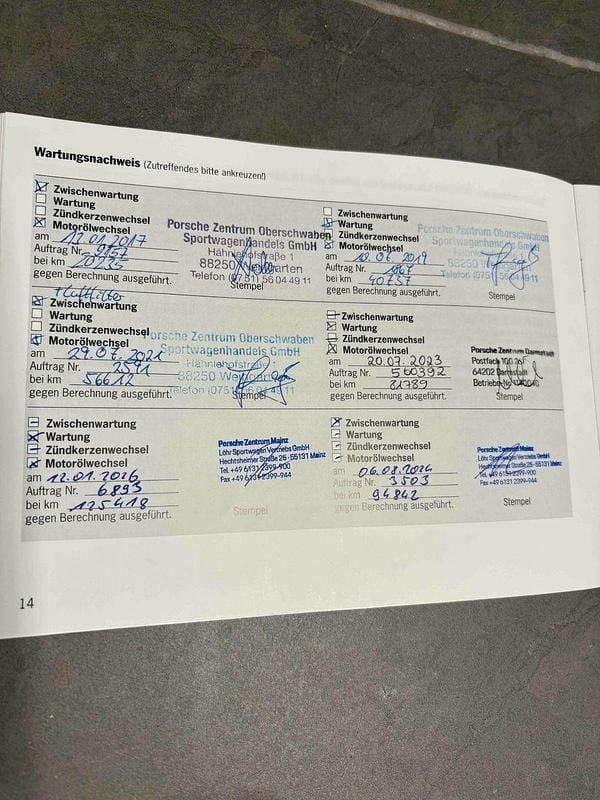 Wartungsnachweis (Zutreffendes bitte ankreuzen!)
Zwischenwartung
Wartung
Zündkerzenwechsel
Motorölwechsel
am 2017
Auftrag Nr.
bei km
gegen Berechnung ausgeführt.
Porsche Zentrum Oberschwaben
Sportwagenhandels GmbH
Hähnlehofstraße 1
88250 Weingarten
Telefon (0751) 56 04 49 11
Stempel
Zwischenwartung
Wartung
Zündkerzenwechsel
Motorölwechsel
am 2019
Auftrag Nr.
bei km 40737
gegen Berechnung ausgeführt.
Porsche Zentrum Oberschwaben
Sportwagenhandels GmbH
Telefon (0751) 56 04 49 11
Stempel
Zwischenwartung
Wartung
Zündkerzenwechsel
Motorölwechsel
am 29.07.2021
Auftrag Nr. 2591
bei km 56612
gegen Berechnung ausgeführt.
Porsche Zentrum Oberschwaben
Sportwagenhandels GmbH
Hähnlehofstraße
88250 Weingarten
Telefon (0751)
Stempel
Zwischenwartung
Wartung
Zündkerzenwechsel
Motorölwechsel
am 20.07.2023
Auftrag Nr. 560392
bei km 81789
gegen Berechnung ausgeführt.
Porsche Zentrum Darmstadt
Postfach
64202 Darmstadt
Stempel
Zwischenwartung
Wartung
Zündkerzenwechsel
Motorölwechsel
am 12.01.2026
Auftrag Nr. 6893
bei km 125418
gegen Berechnung ausgeführt.
Porsche Zentrum Mainz
Löhr Sportwagen Vertriebs GmbH
Hechtsheimer Straße 25 - 55131 Mainz
Tel. +49 6131 2399-900
Fax +49 6131 2399-944
Stempel
Zwischenwartung
Wartung
Zündkerzenwechsel
Motorölwechsel
am 06.08.2024
Auftrag Nr. 3503
bei km 94842
gegen Berechnung ausgeführt.
Porsche Zentrum Mainz
Löhr Sportwagen Vertriebs GmbH
Hechtsheimer Straße 25 - 55131 Mainz
Tel. +49 6131 2399-900
Fax +49 6131 2399-944
Stempel
14